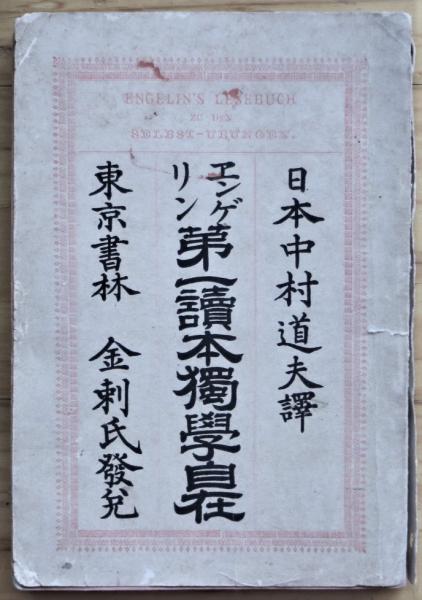 ENGELIN'S LESEBUCH
ZU DEN
SELBST-UBUNGEN.
日本中村道夫譯
ヱンゲリン第一讀本獨學自在
東京書林 金刺氏發兌